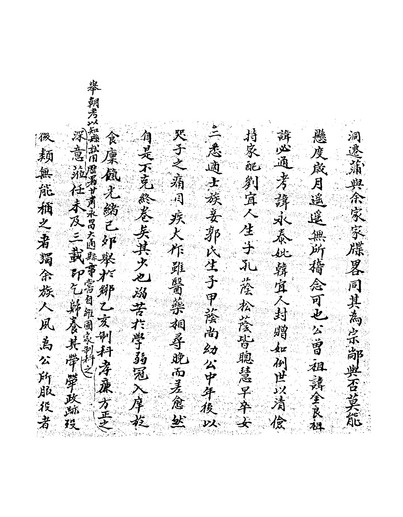 洞遷蒲與余家家牒畧同其為宗鄗與否莫能
懸度啟月遥遥無所稽念可也公曾祖諱金良祖
諱必通考諱永泰妣韓宜人封贈如例世以清儉
持家配劉宜人生子孔蔭松蔭皆聰慧早卒女
三悉適士族妾郭氏生子甲蔭尚幼公中年後以
哭子之痛目疾大作雖醫藥相尋晚而差愈然
自是不克終卷矣其少也溺苦於學弱冠入庠旋
食廩餼光緒己卯舉於鄉乙亥制科孝廉方正之
舉朝考以知縣
深意蒞任未及三載即乞歸養其犖犖政跡歿
後類無能稱之者獨余族人夙為公所服役者